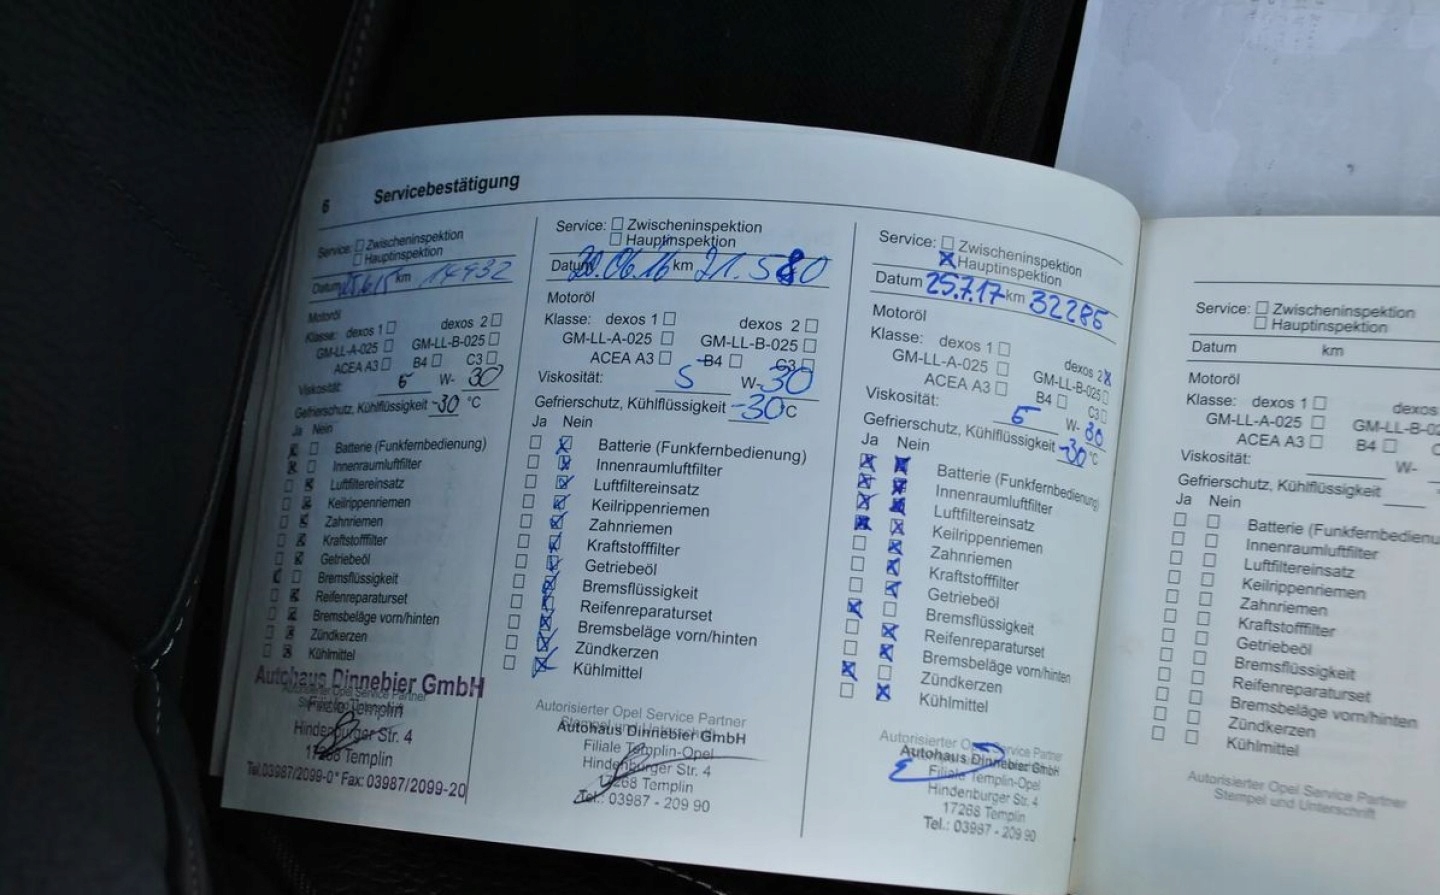 6 Servicebestätigung
Service: Zwischeninspektion
Hauptinspektion
Datum 25.6.15 km 14932
Motoröl
Klasse: dexos 1 dexos 2
GM-LL-A-025 GM-LL-B-025
ACEA A3 B4 C3
Viskosität: 5 W- 30
Gefrierschutz, Kühlflüssigkeit -30 °C
Ja Nein
Batterie (Funkfernbedienung)
Innenraumluftfilter
Luftfiltereinsatz
Keilrippenriemen
Zahnriemen
Kraftstofffilter
Getriebeöl
Bremsflüssigkeit
Reifenreparaturset
Bremsbeläge vorn/hinten
Zündkerzen
Kühlmittel
Autohaus Dinnebier GmbH
Filiale Templin
Hindenburger Str. 4
17268 Templin
Tel.03987/2099-0* Fax: 03987/2099-20
Service: Zwischeninspektion
Hauptinspektion
Datum 20.06.16 km 21.580
Motoröl
Klasse: dexos 1 dexos 2
GM-LL-A-025 GM-LL-B-025
ACEA A3 B4 C3
Viskosität: 5 W- 30
Gefrierschutz, Kühlflüssigkeit -30 °C
Ja Nein
Batterie (Funkfernbedienung)
Innenraumluftfilter
Luftfiltereinsatz
Keilrippenriemen
Zahnriemen
Kraftstofffilter
Getriebeöl
Bremsflüssigkeit
Reifenreparaturset
Bremsbeläge vorn/hinten
Zündkerzen
Kühlmittel
Autorisierter Opel Service Partner
Stempel und Unterschrift
Autohaus Dinnebier GmbH
Filiale Templin-Opel
Hindenburger Str. 4
17268 Templin
Tel.: 03987 - 209 90
Service: Zwischeninspektion
Hauptinspektion
Datum 25.7.17 km 32286
Motoröl
Klasse: dexos 1 dexos 2
GM-LL-A-025 GM-LL-B-025
ACEA A3 B4 C3
Viskosität: 5 W- 30
Gefrierschutz, Kühlflüssigkeit -30 °C
Ja Nein
Batterie (Funkfernbedienung)
Innenraumluftfilter
Luftfiltereinsatz
Keilrippenriemen
Zahnriemen
Kraftstofffilter
Getriebeöl
Bremsflüssigkeit
Reifenreparaturset
Bremsbeläge vorn/hinten
Zündkerzen
Kühlmittel
Autorisierter Opel Service Partner
Autohaus Dinnebier GmbH
Filiale Templin-Opel
Hindenburger Str. 4
17268 Templin
Tel.: 03987 - 209 90
Service: Zwischeninspektion
Hauptinspektion
Datum km
Motoröl
Klasse: dexos 1 dexos
GM-LL-A-025 GM-LL-B-02
ACEA A3 B4 C
Viskosität: W-
Gefrierschutz, Kühlflüssigkeit
Ja Nein
Batterie (Funkfernbedienu
Innenraumluftfilter
Luftfiltereinsatz
Keilrippenriemen
Zahnriemen
Kraftstofffilter
Getriebeöl
Bremsflüssigkeit
Reifenreparaturset
Bremsbeläge vorn/hinten
Zündkerzen
Kühlmittel
Autorisierter Opel Service Partner
Stempel und Unterschrift